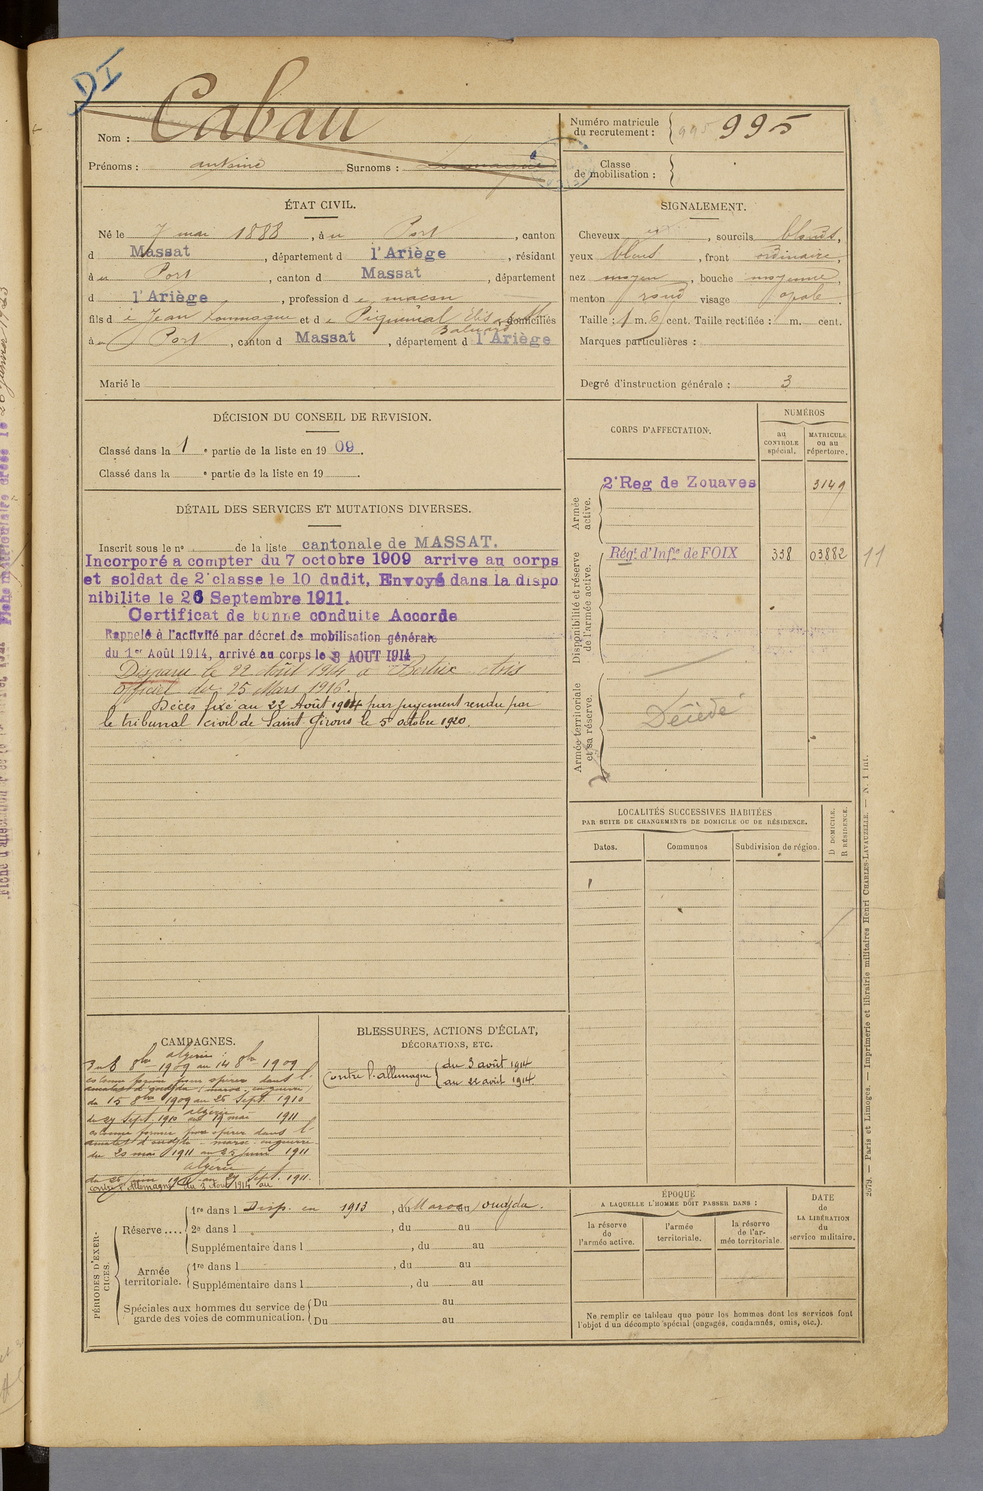 DI
Nom : Cabau
Prénoms : antoine Surnoms :
Numéro matricule du recrutement : 995 995
Classe de mobilisation :
ÉTAT CIVIL.
Né le 7 mai 1888, à u Port, canton
d Massat, département d l'Ariège, résidant
à u Port, canton d Massat, département
d l'Ariège, profession d e maçon
fils d e Jean Loumagne et d e Piquemal domiciliés
à u Port, canton d Massat, département d l'Ariège
Marié le
SIGNALEMENT.
Cheveux , sourcils blonds,
yeux bleus, front ordinaire,
nez moyen, bouche moyenne,
menton rond visage ovale.
Taille : 1 m. 6 cent. Taille rectifiée : 1 m. cent.
Marques particulières :
Degré d'instruction générale : 3
DÉCISION DU CONSEIL DE REVISION.
Classé dans la 1 e partie de la liste en 1909.
Classé dans la e partie de la liste en 19 .
DÉTAIL DES SERVICES ET MUTATIONS DIVERSES.
Inscrit sous le no de la liste cantonale de MASSAT.
Incorporé a compter du 7 octobre 1909 arrive au corps
et soldat de 2e classe le 10 dudit, Envoyé dans la dispo
nibilite le 26 Septembre 1911.
Certificat de bonne conduite Accorde
Rappelé à l'activité par décret de mobilisation générale
du 1er Août 1914, arrivé au corps le 3 AOUT 1914
Disparu le 22 Août 1914 à Bertrix Avis
officiel du 25 Mars 1916.
Décès fixé au 22 Août 1914 par jugement rendu par
le tribunal civil de Saint Girons le 5 octobre 1920
CORPS D'AFFECTATION.
NUMÉROS
au CONTROLE spécial.
MATRICULE ou au répertoire.
Armée active.
2e Reg de Zouaves 3149
Disponibilité et réserve de l'armée active.
Régt d'Infie de FOIX 338 03882 11
Armée territoriale et sa réserve.
Décédé
LOCALITÉS SUCCESSIVES HABITÉES
PAR SUITE DE CHANGEMENTS DE DOMICILE OU DE RÉSIDENCE.
Dates. Communes Subdivision de région. D DOMICILE. R RÉSIDENCE.
CAMPAGNES.
algérie
8bre 1909 au 14 8bre 1909
du 15 8bre 1909 au 26 Sept. 1910
algérie
du 27 Sept. 1910 au 19 mai 1911
du 20 mai 1911 au 25 juin 1911
algérie
du 26 juin 1911 au 27 Sept. 1911.
contre l'Allemagne du 3 Août 1914 au
BLESSURES, ACTIONS D'ÉCLAT,
DÉCORATIONS, ETC.
Contre l'allemagne du 3 août 1914
au 22 août 1914
PÉRIODES D'EXERCICES.
Réserve....
1re dans l Disp. en 1913, du Maroc au oudjda.
2e dans l , du au
Supplémentaire dans l , du au
Armée territoriale.
1re dans l , du au
Supplémentaire dans l , du au
Spéciales aux hommes du service de garde des voies de communication.
Du au
Du au
ÉPOQUE
A LAQUELLE L'HOMME DOIT PASSER DANS :
la réserve de l'armée active.
l'armée territoriale.
la réserve de l'armée territoriale.
DATE de LA LIBÉRATION du service militaire.
Ne remplir ce tableau que pour les hommes dont les services font
l'objet d'un décompte spécial (engagés, condamnés, omis, etc.).
2079. — Paris et Limoges. — Imprimerie et librairie militaires Henri CHARLES-LAVAUZELLE. — N. 1 int.